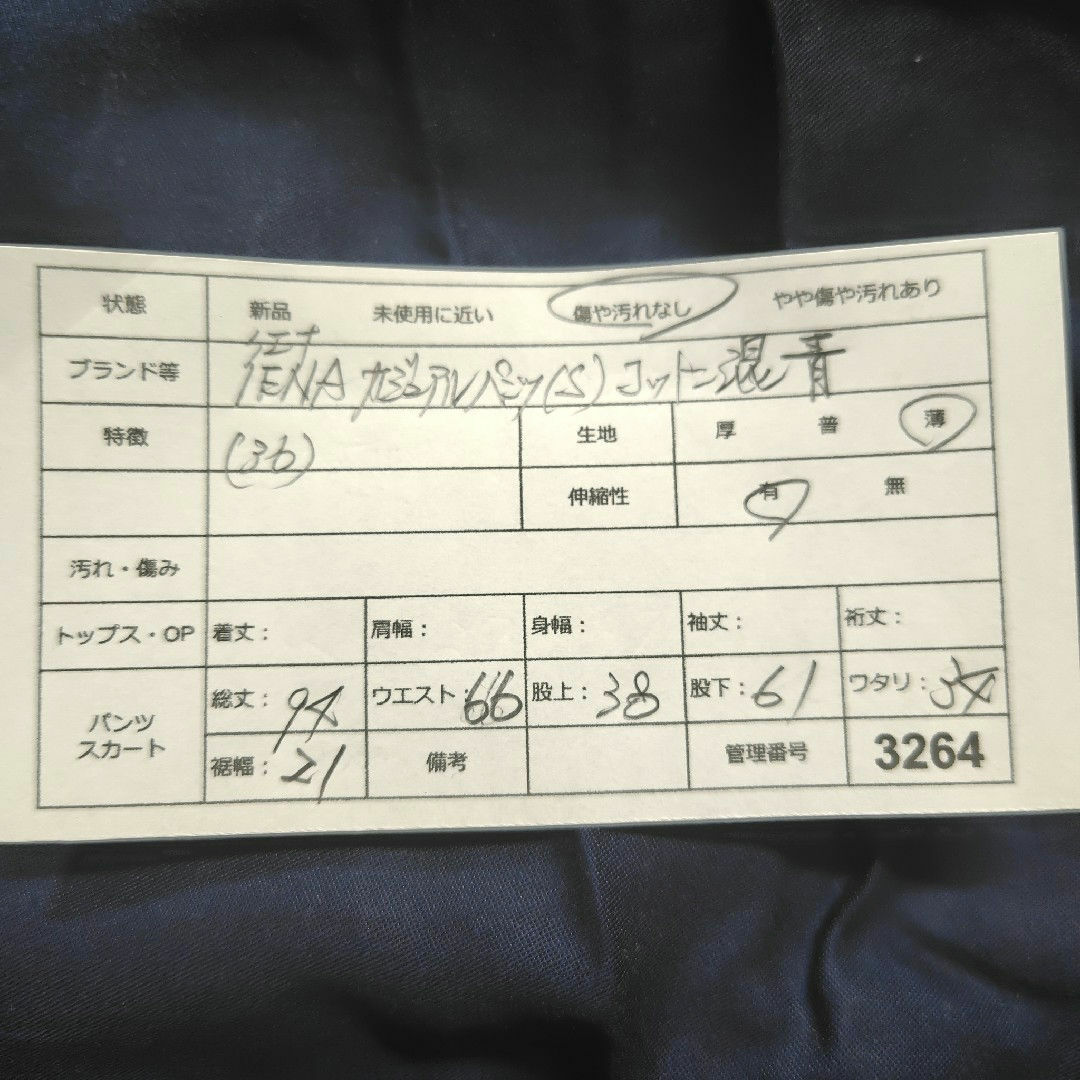 状態 新品 未使用に近い 傷や汚れなし やや傷や汚れあり
イエナ
ブランド等 IENA カジュアルパンツ(S) コットン混 青
特徴 (36) 生地 厚 普 薄
伸縮性 有 無
汚れ・傷み
トップス・OP 着丈: 肩幅: 身幅: 袖丈: 裄丈:
パンツ スカート 総丈:94 ウエスト:66 股上:38 股下:61 ワタリ:34
裾幅:21 備考 管理番号 3264